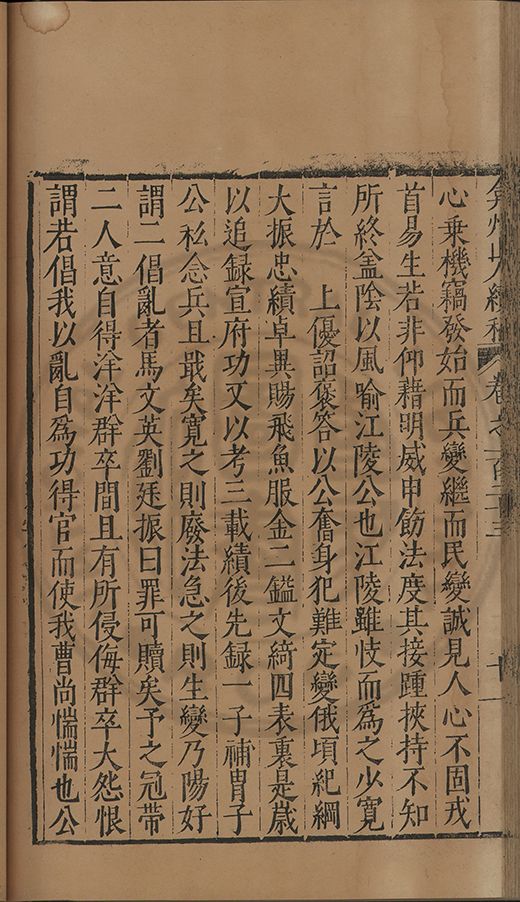 弇州山人續稿 卷之一百三十三 十一
心乗機竊發始而兵變繼而民變誠見人心不固戎
首易生若非仰藉明威申飭法度其接踵挾持不知
所終盖陰以風喻江陵公也江陵雖忮而爲之少寛
言於 上優詔褒答以公奮身犯難定變俄頃紀綱
大振忠績卓異賜飛魚服金二鎰文綺四表裏是嵗
以追録宣府功又以考三載績後先録一子補胄子
公私念兵且戢矣寛之則廢法急之則生變乃陽好
謂二倡亂者馬文英劉廷振曰罪可贖矣予之冠帶
二人意自得洋洋群卒間且有所侵侮群卒大怨恨
謂若倡我以亂自爲功得官而使我曹尚惴惴也公